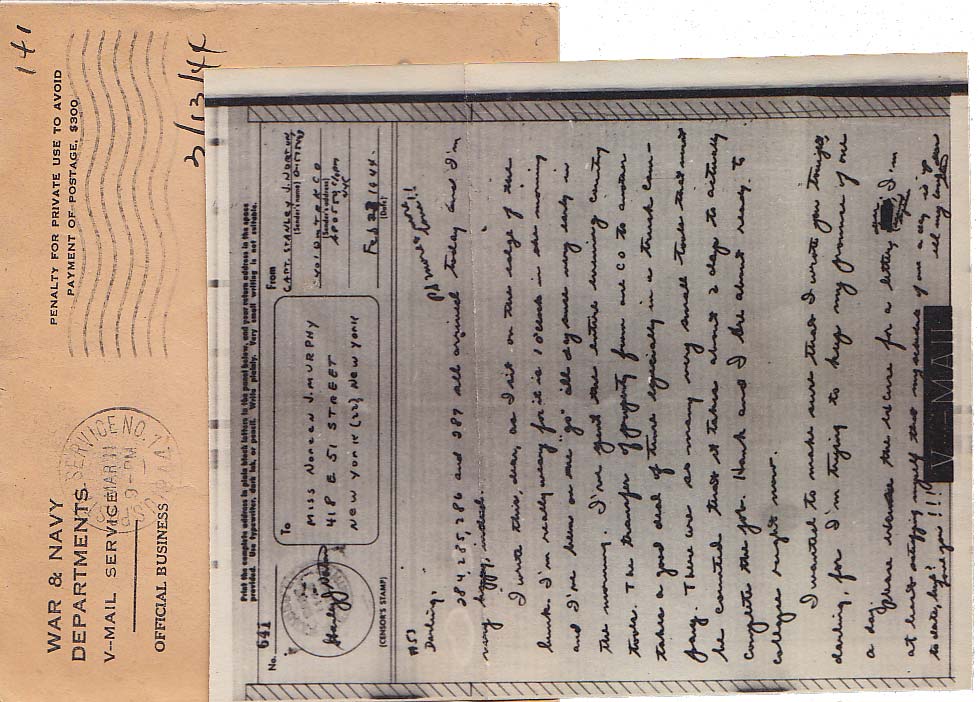 141
PENALTY FOR PRIVATE USE TO AVOID
PAYMENT OF POSTAGE, $300
3/13/44
SERVICE NO. 7
MAR 11
9-PM
WAR & NAVY
DEPARTMENTS
V--MAIL SERVICE
OFFICIAL BUSINESS
Print the complete address in plain block letters in the panel below, and your return address in the space
provided. Use typewriter, dark ink, or pencil. Write plainly. Very small writing is not suitable.
No. 641
(CENSOR'S STAMP)
To
MISS NOREEN J. MURPHY
418 E 51 STREET
NEW YORK (22) NEW YORK
From
CAPT. STANLEY J. NORTON
(Sender's name)
(Sender's address)
Feb 28 1944
(Date)
#53
Darling,
284, 285, 286 and 287 all arrived today and I'm
very happy, indeed.
I write this, dear, as I sit on the edge of the
bunk. I'm really weary for it is 10 o'clock in the evening
and I've been on the "go" all day since very early in
the morning. I've spent the entire evening counting
tools. The transfer of property from one CO to another
takes a good deal of time especially in a truck Com-
pany. There are so many very small tools that must
be counted that it takes about 2 days to actually
complete the job. Hank and I are about ready to
collapse right now.
I wanted to make sure that I wrote you tonight,
darling, for I'm trying to keep my promise of one
a day.
Please blame the excuse for a letter, I'm
at least satisfying myself that my series of one a day is up
to date, hey!
Love you!!!!
V-MAIL